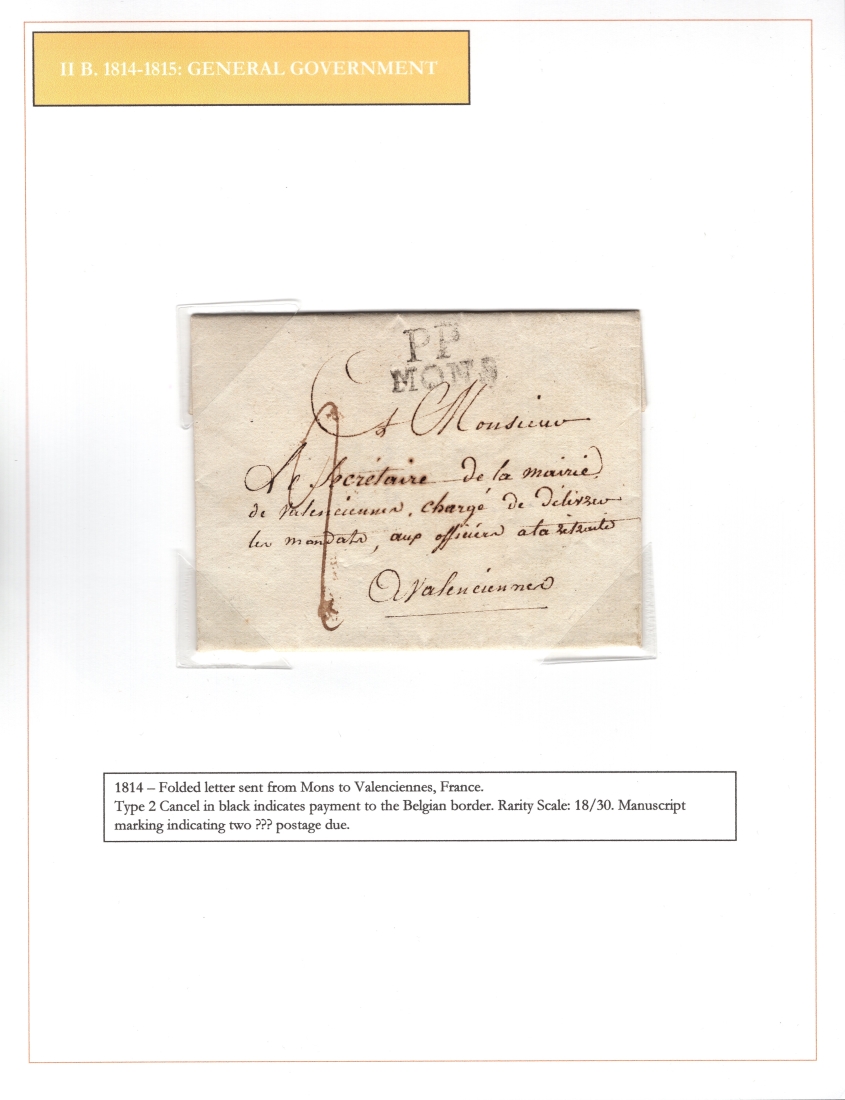 II B. 1814-1815: GENERAL GOVERNMENT
PP
MONS
A Monsieur
Le Secrétaire de la mairie
de Valenciennes, chargé de délivrer
les mandats, aux officiers a la retraite
A Valenciennes
1814 – Folded letter sent from Mons to Valenciennes, France.
Type 2 Cancel in black indicates payment to the Belgian border. Rarity Scale: 18/30. Manuscript
marking indicating two ??? postage due.